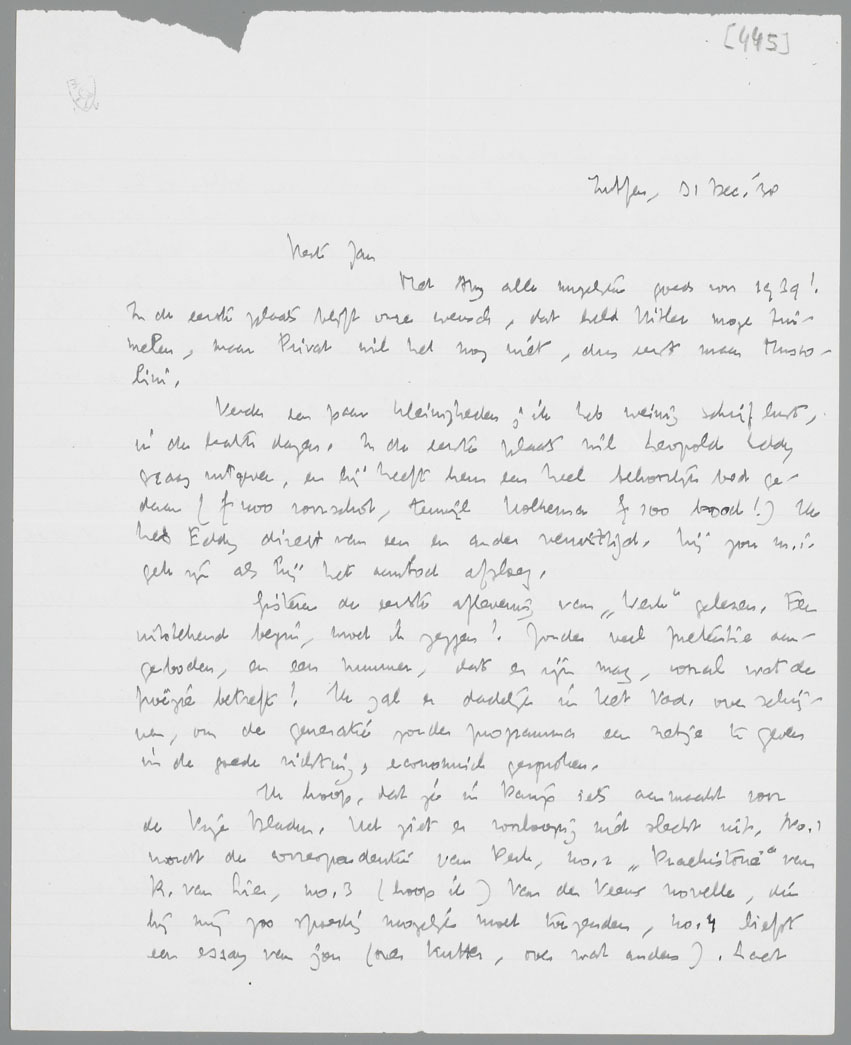 [445]
Zutfen, 31 Dec. '38
Beste Jan
Met Any alle mogelijke goeds voor 1939!
In de eerste plaats blijft onze wensch, dat held Hitler moge tui-
melen, maar Privat wil het nog niét, dus eerst maar Musso-
lini.
Verder een paar kleinigheden; ik heb weinig schrijflust,
in de laatste dagen. In de eerste plaats wil Leopold Eddy
graag uitgeven, en hij heeft hem een heel behoorlijk bod ge-
daan (f 1000 voorschot, terwijl Holkema f 300 bood!) Ik
heb Eddy direct van een en ander verwittigd. Hij zou m.i.
gek zijn als hij het aanbod afsloeg.
Gisteren de eerste aflevering van „Werk" gelezen. Een
uitstekend begin, moet ik zeggen! Zonder veel pretentie aan-
geboden, en een nummer, dat er zijn mag, vooral wat de
poëzie betreft! Ik zal er dadelijk in Het Vad. over schrij-
ven, om de generatie zonder programma een zetje te geven
in de goede richting, economisch gesproken.
Ik hoop, dat je in Parijs iets aanmaakt voor
de Vrije Bladen. Het ziet er voorloopig niét slecht uit. No. 1
wordt de correspondentie van Perk, no. 2 „Praehistorie" van
R. van Lier, no. 3 (hoop ik) Van der Veens novelle, die
hij mij zoo spoedig mogelijk moet toezenden, no. 4 liefst
een essay van jou (over Kutter, over wat anders). Laat